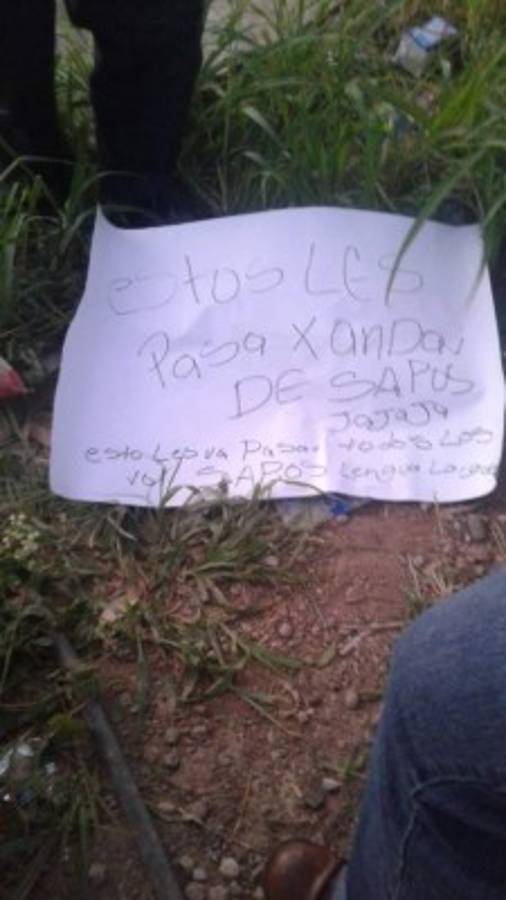 estos LES
Pasa X anDar
DE SAPOS
JaJaJa
esto Les va Pasar todos LOS
SAPOS Lengua